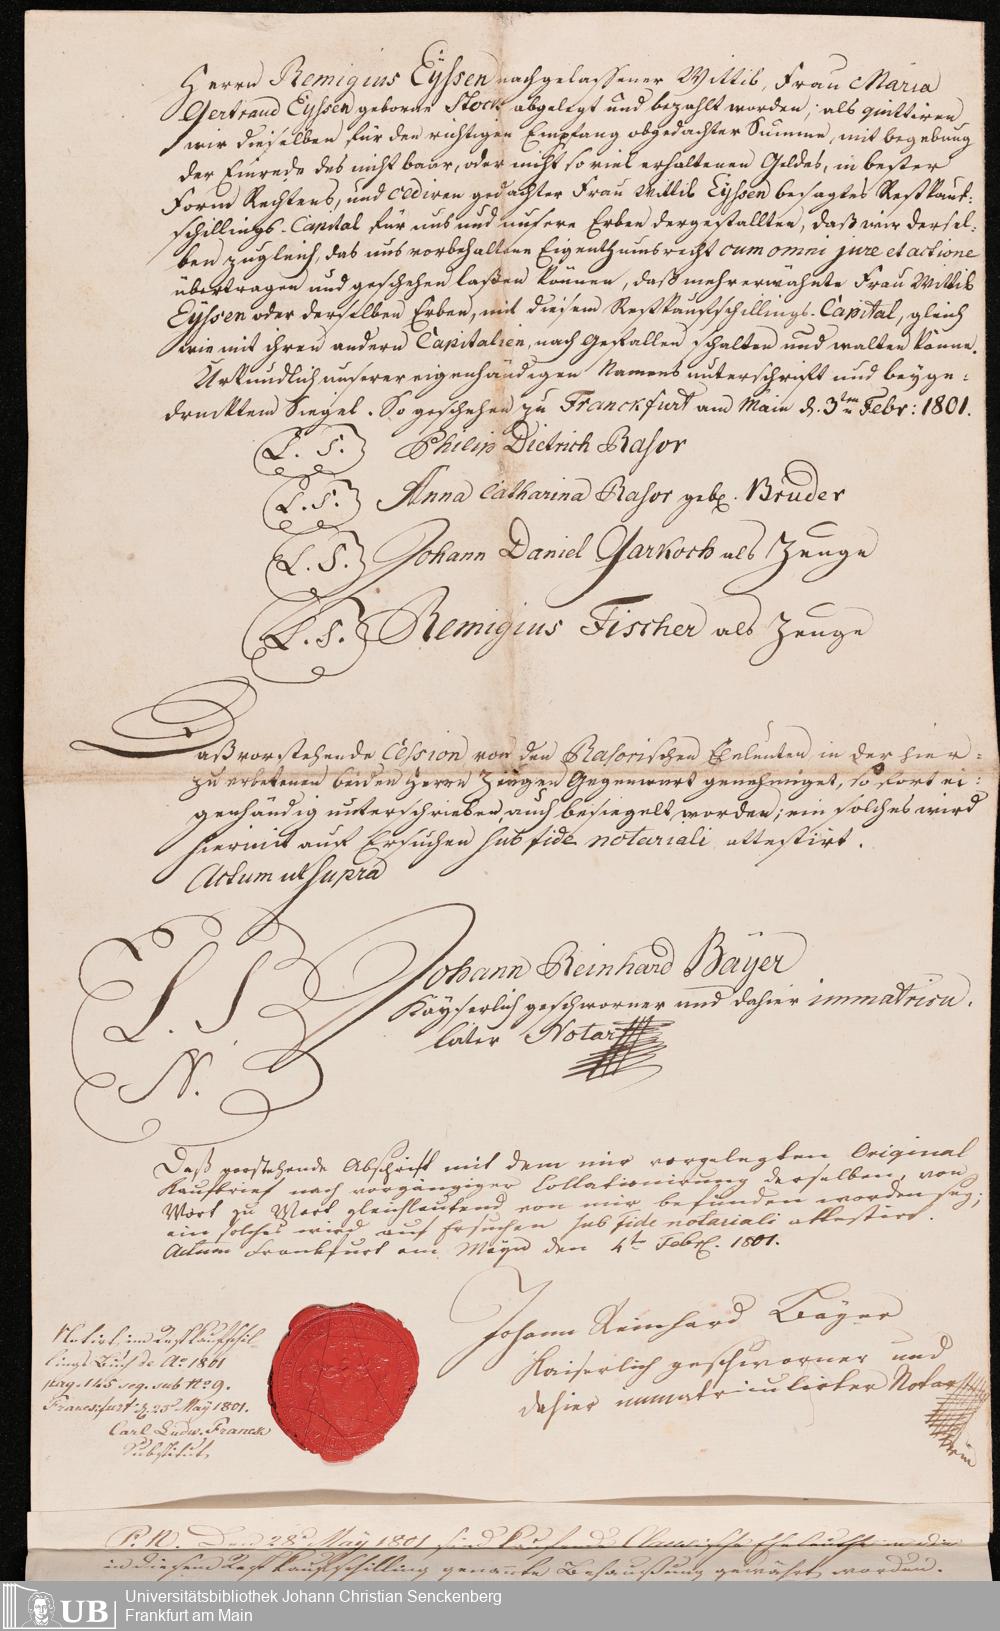 Herrn Remigius Eyssen nachgelassener Wittib, Frau Maria
Gertraud Eyssen geborne Stock abgelegt und bezahlt worden; als quittiren
wir dieselben für den richtigen Empfang obgedachter Summe, mit begebung
der Einrede des nicht baar, oder nicht so viel erhaltenen Geldes, in bester
Form Rechtens, und cediren gedachter Frau Wittib Eyssen besagtes Restkauf-
schillings-Capital für uns und unsere Erben dergestallten, daß wir dersel-
ben zugleich, das uns vorbehaltene Eigenthumsrecht cum omni jure et actione
übertragen und geschehen laßen können, daß mehrerwähnte Frau Wittib
Eyssen oder derselben Erben, mit diesem Restkaufschillings-Capital, gleich
wie mit ihren andern Capitalien, nach Gefallen schalten und walten könne.
Urkundlich unserer eigenhändigen Namens unterschrift und beyge-
drucktem Siegel. So geschehen zu Franckfurt am Main d. 3ten Febr: 1801.
(L. S.) Philip Dietrich Rasor
(L. S.) Anna Catharina Rasor geb. Bruder
(L. S.) Johann Daniel Garkoch als Zeuge
(L. S.) Remigius Fischer als Zeuge
Daß vorstehende Cession von den Rasorischen Eheleuten in der hier-
zu erbetenen beiden Herrn Zeugen Gegenwart genehmiget, so fort ei-
genhändig unterschrieben, auch besiegelt worden; ein solches wird
hiermit auf Ersuchen sub fide notariali attestirt.
Actum ut supra
L. S.
N.
Johann Reinhard Bäyer
Kayserlich geschworner und dahier immatricu-
lirter Notar
Daß vorstehende Abschrift mit dem mir vorgelegten Original
Kaufbrief nach vorgängiger Collationirung derselben, von
Wort zu Wort gleichlautend von mir befunden worden sey;
ein solches wird auf Ersuchen sub fide notariali attestirt.
Actum Frankfurt am Mayn den 4te Febr. 1801.
Johann Reinhard Bäyer
Kaiserlich geschworner und
dahier immatriculirter Notar
Notirt im Restkaufschil-
lings Buch de Ao 1801
pag. 145 seq. sub No 9.
Francsfurt d. 25t May 1801.
Carl Ludw. Franck
Substitut
P. N. Den 28t May 1801 sind
in diesem Restkaufschilling genannte Behaußung gewährt worden.
Universitätsbibliothek Johann Christian Senckenberg
Frankfurt am Main
UB